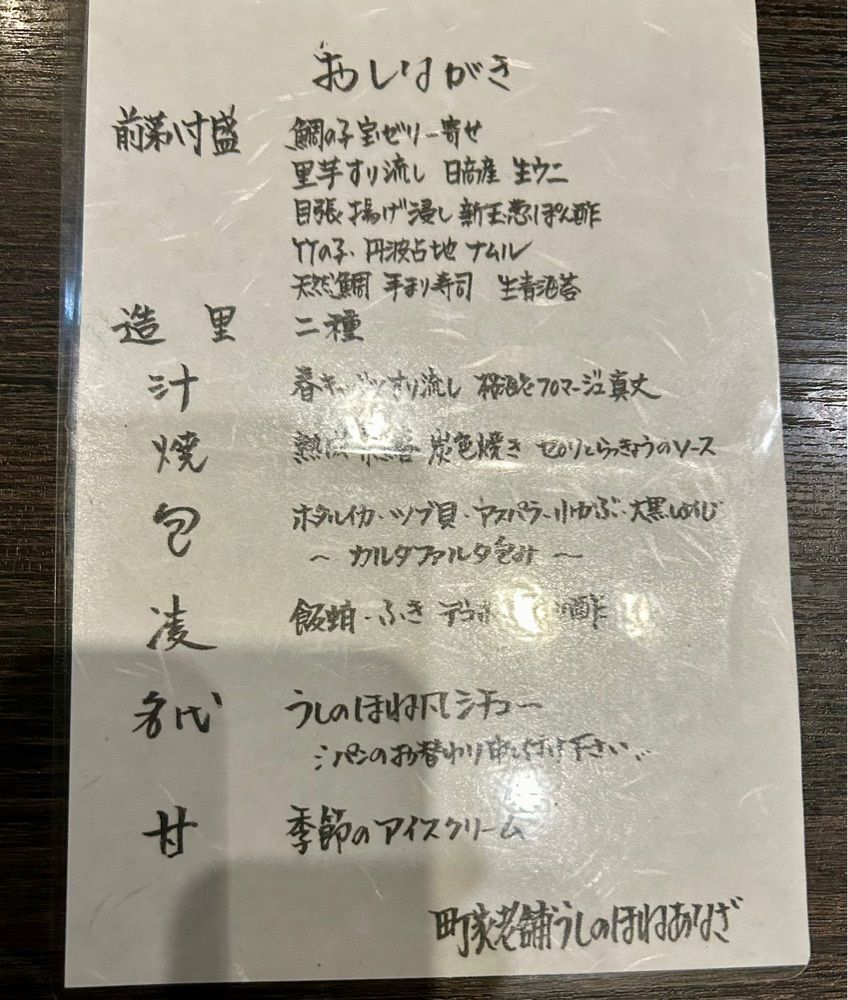 おしながき
前菜八寸盛 鯛の子宝ゼリー寄せ
里芋すり流し 日高産 生ウニ
目張 揚げ浸し 新玉葱ぽん酢
竹の子・丹波占地 ナムル
天然鯛 手まり寿司 生青海苔
造里 二種
汁 春キャベツすり流し フロマージュ真丈
焼 炭色焼き セロリとらっきょうのソース
包 ホタルイカ・ツブ貝・アスパラ・小かぶ・大黒しめじ
〜 カルタファルタ包み 〜
凌 飯蛸・ふき デコポン 酢
名代 うしのほね風シチュー
パンのお替わり申し付け下さい
甘 季節のアイスクリーム
町家老舗うしのほねあなざ